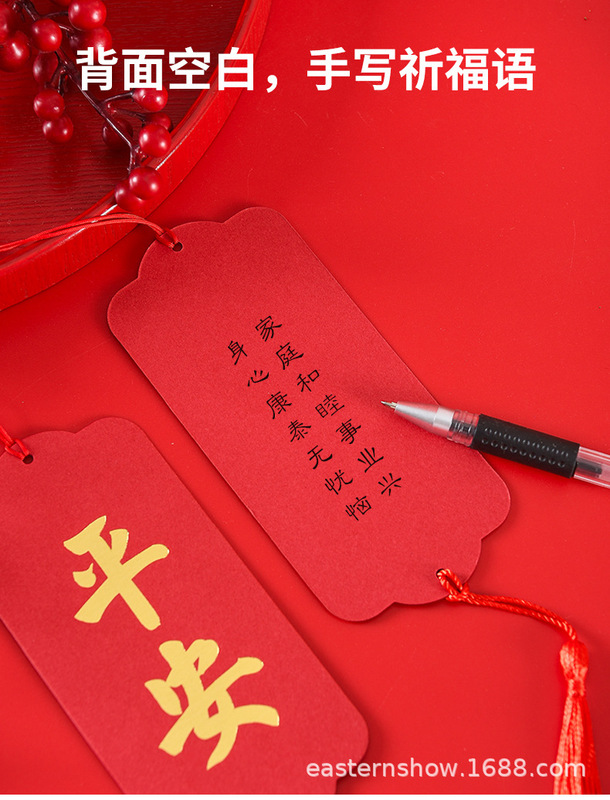 背面空白，手写祈福语
家庭和睦事业兴
身心康泰无忧恼
平安
easternshow.1688.com